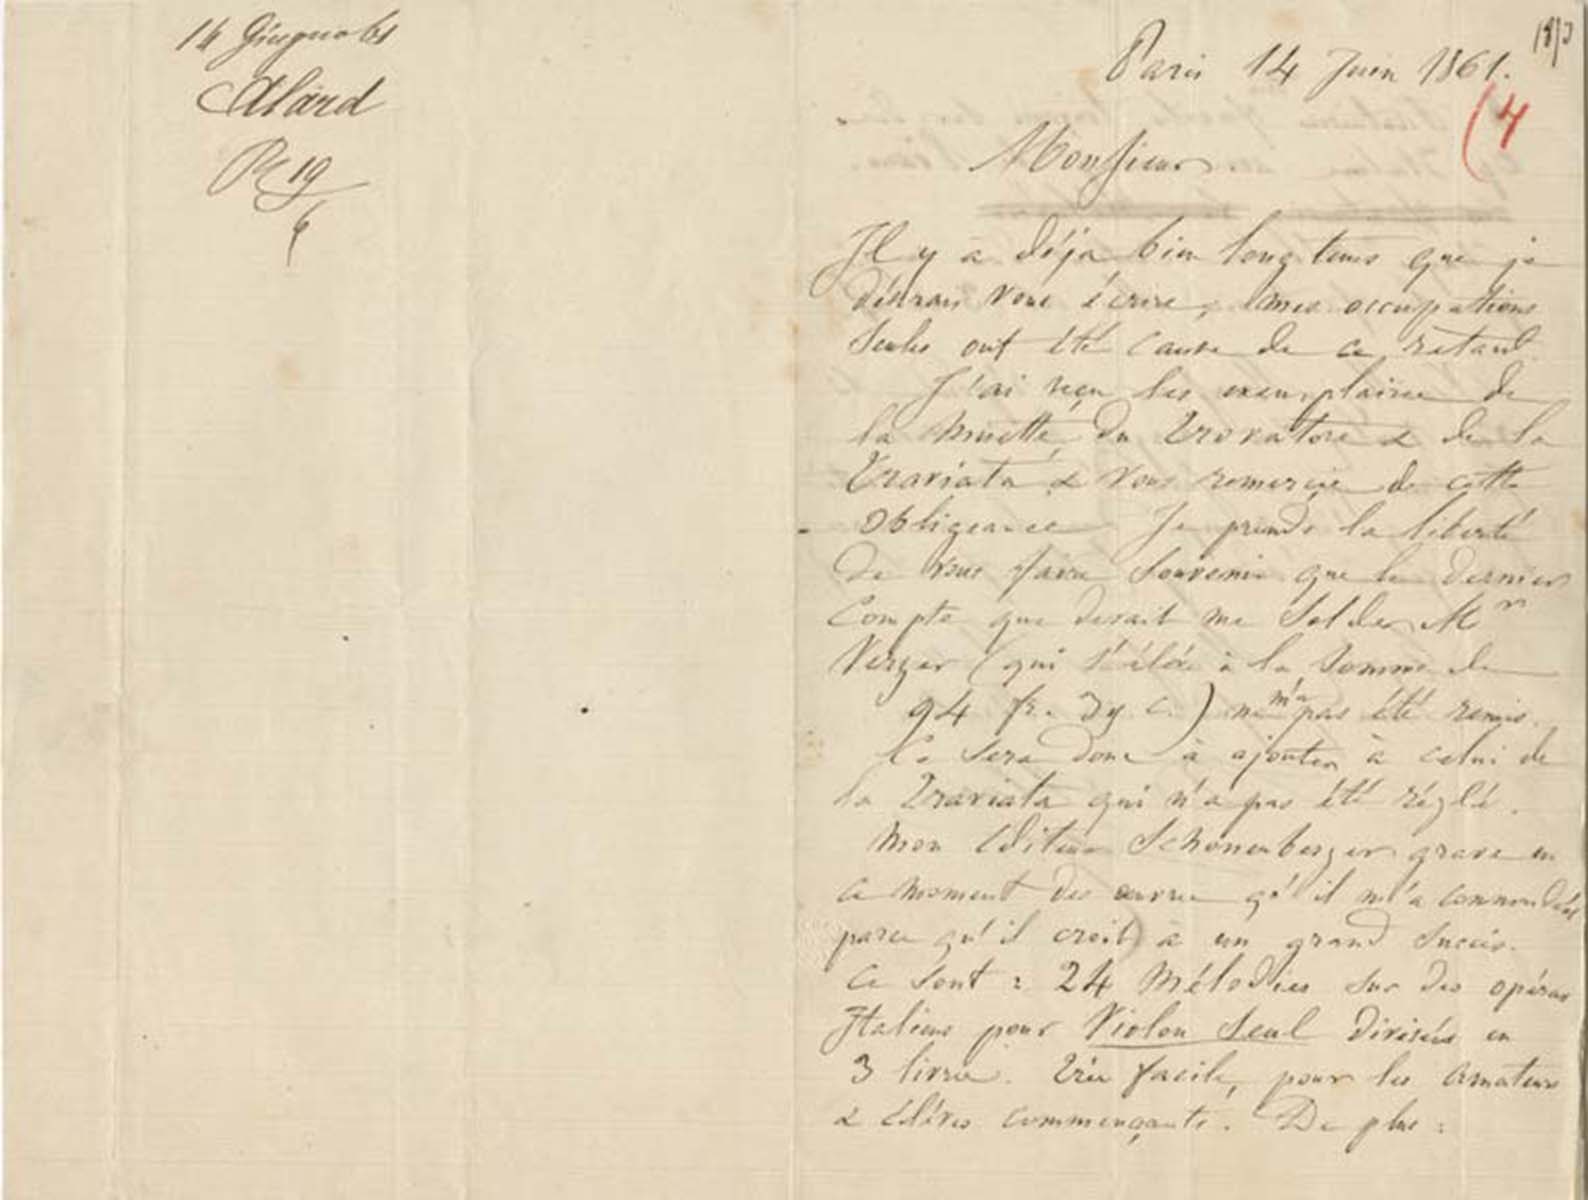 14 Giugno 61
Alard
R 19
6
Paris 14 Juin 1861.
(4
Monsieur
Il y a déjà bien long tems que je
désirais vous écrire, mes occupations
seules ont été cause de ce retard.
J'ai reçu les exemplaires de
la Muette, du Trovatore & de la
Traviata & vous remercie de cette
obligeance. Je prends la liberté
de vous faire souvenir que le dernier
Compte que devait me solder Mr
Verger (qui s'élève à la somme de
94 fr. c.) ne m'a pas été remis.
Ce sera donc à ajouter à celui de
la Traviata qui n'a pas été réglé.
Mon Editeur Schonenberger grave en
ce moment des œuvres qu'il m'a commandées
parce qu'il croit à un grand succès.
Ce sont : 24 Mélodies sur des opéras
Italiens pour Violon Seul divisées en
3 livres. Très facile, pour les amateurs
& élèves commençants. De plus :